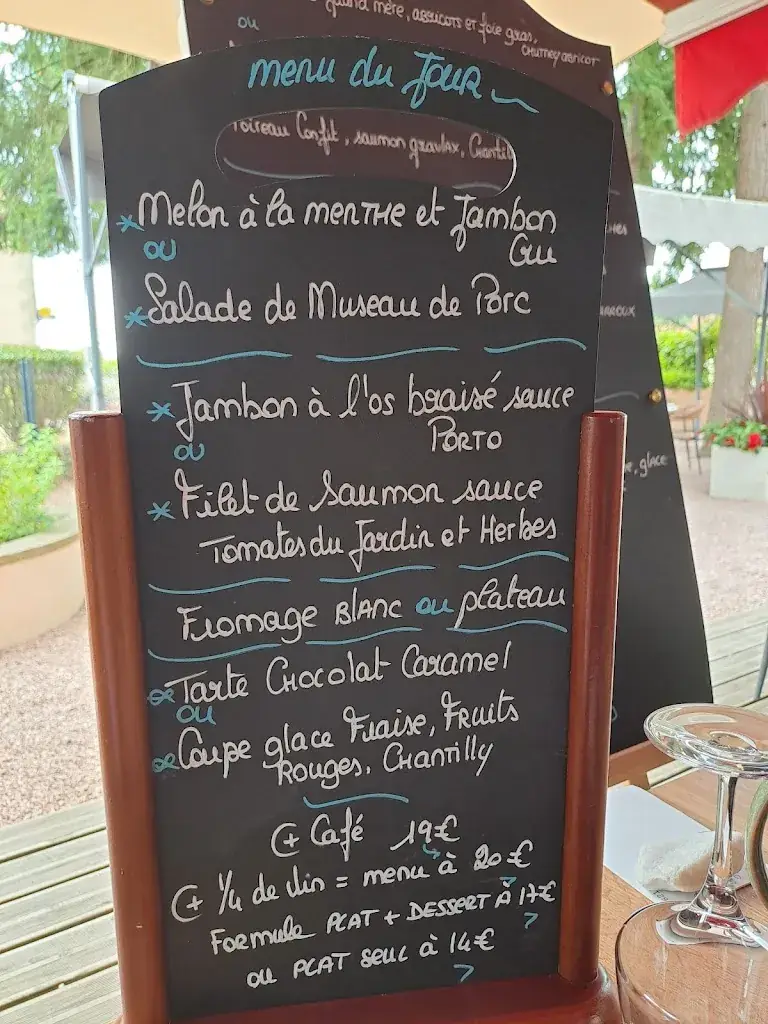 ou
grand mère, abricots et foie gras,
chutney abricot
menu du Jour
Poireau Confit, saumon gravlax, Chantil
* Melon à la menthe et Jambon
ou
Cru
* Salade de Museau de Porc
* Jambon à l'os braisé sauce
ou
Porto
* Filet de Saumon sauce
Tomates du Jardin et Herbes
Fromage Blanc ou plateau
Tarte Chocolat Caramel
ou
Coupe glace Fraise, Fruits
Rouges, Chantilly
(+ Café 19€
(+ 1/4 de vin = menu à 20€
Formule PLAT + DESSERT à 17€
ou PLAT seul à 14€
glace